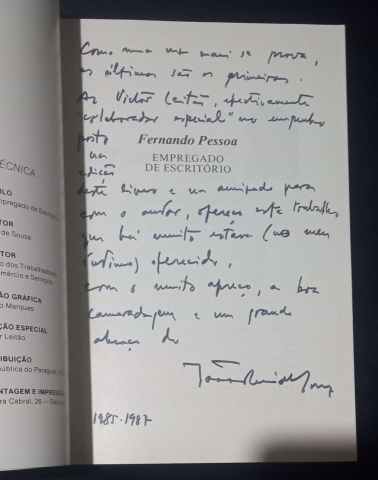 ÉCNICA
ULO
mpregado de Escri
TOR
de Sousa
TOR
o dos Trabalhadores
mércio e Serviços
ÃO GRÁFICA
o Marques
ÇÃO ESPECIAL
r Leitão
RIBUIÇÃO
pública do Paraguai,
NTAGEM E IMPRES
ra Cabral, 26 —
Como uma vez mais se prova,
os últimos são os primeiros.
Ao Victor Leitão, efectivamente
"colaborador especial" no empenho
posto
Fernando Pessoa
na
EMPREGADO
DE ESCRITÓRIO
edição
deste livro e na amizade para
com o autor, ofereço este trabalho
que há muito estava (no meu
íntimo) oferecido,
com o muito apreço, a boa
camaradagem e um grande
abraço do
1985-1987